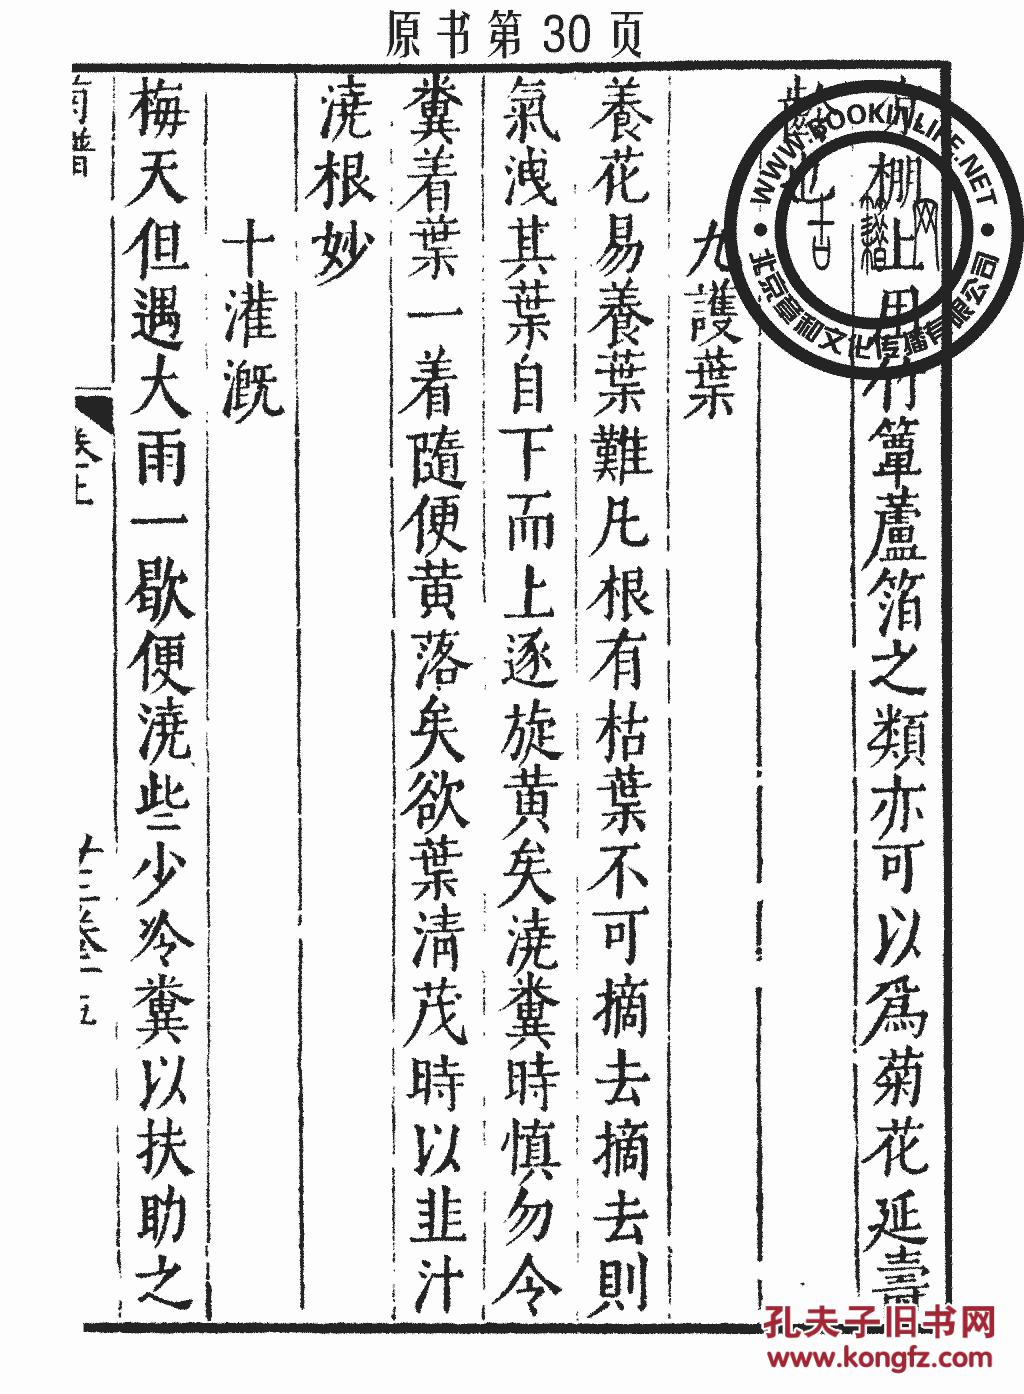 原书第30页
棚上用竹簟蘆箔之類亦可以爲菊花延壽
九護葉
養花易養葉難凡根有枯葉不可摘去摘去則
氣洩其葉自下而上逐旋黄矣澆糞時慎勿令
糞着葉一着隨便黄落矣欲葉清茂時以韭汁
澆根妙
十灌溉
梅天但遇大雨一歇便澆些少冷糞以扶助之
WWW.BOOKINLINE.NET
北京章和文化传播有限公司
孔夫子旧书网
www.kongfz.com